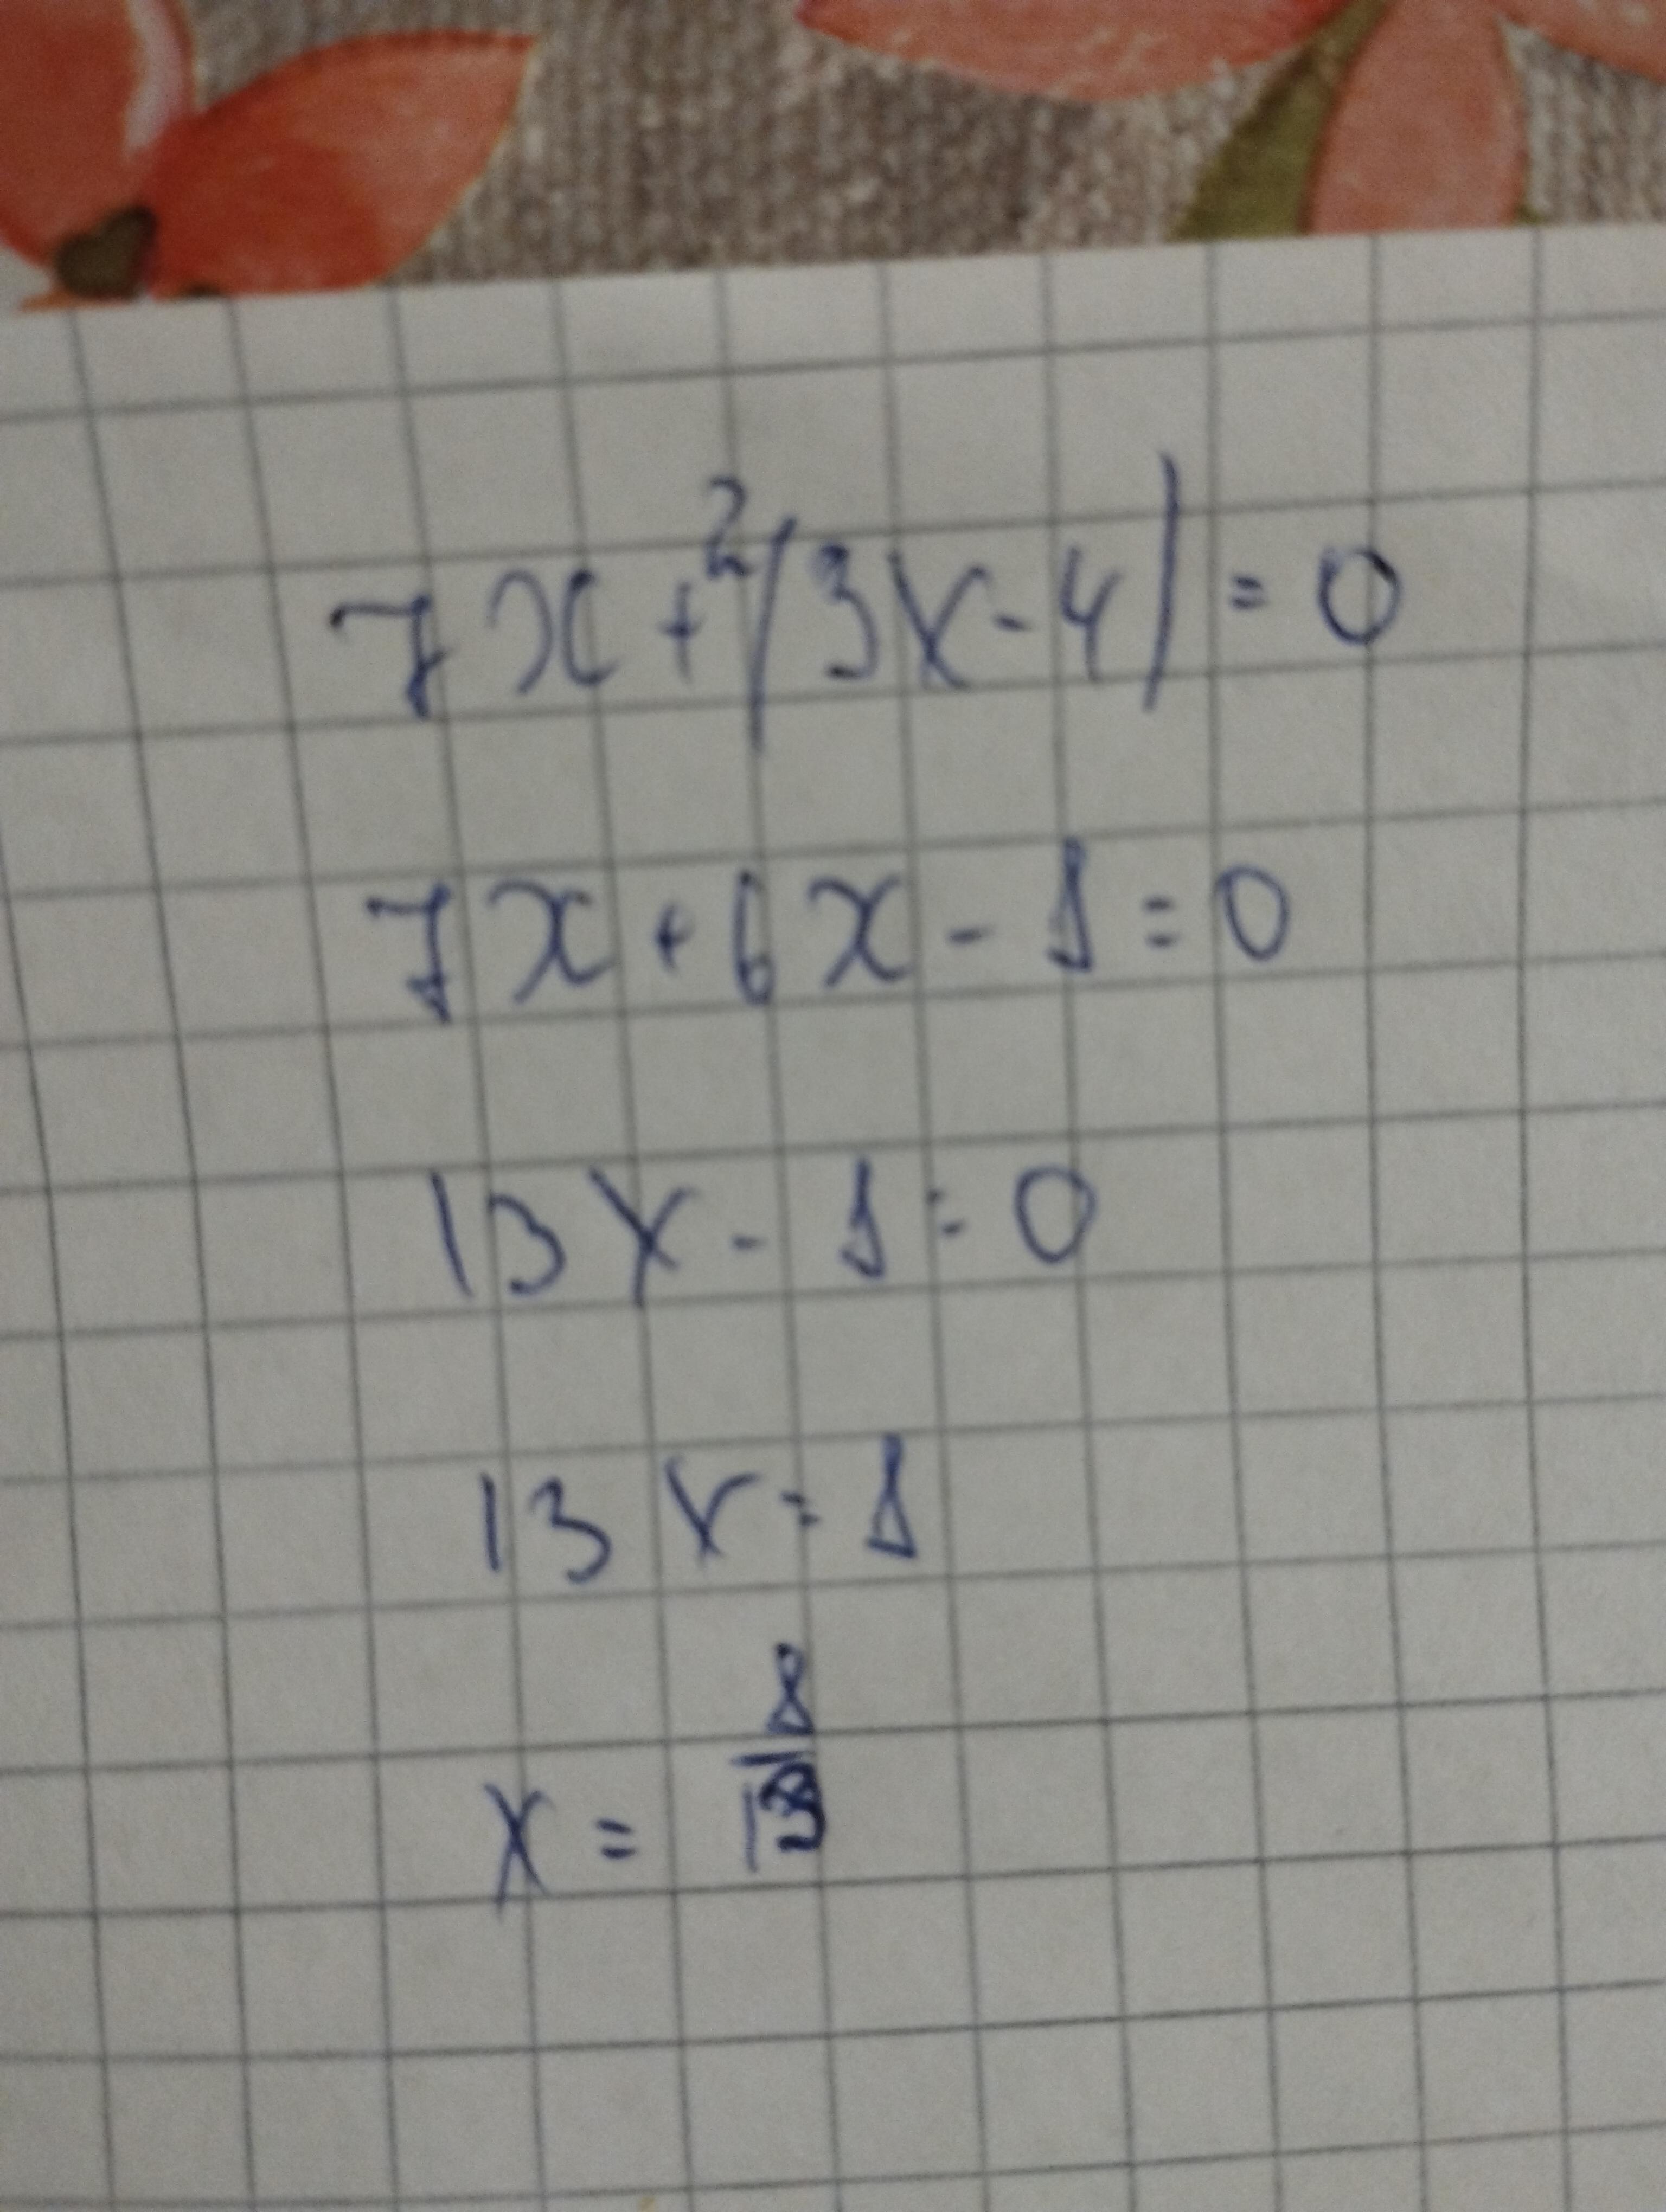 7x + 2(3x - 4) = 0
7x + 6x - 8 = 0
13x - 8 = 0
13x = 8
x = 8/13